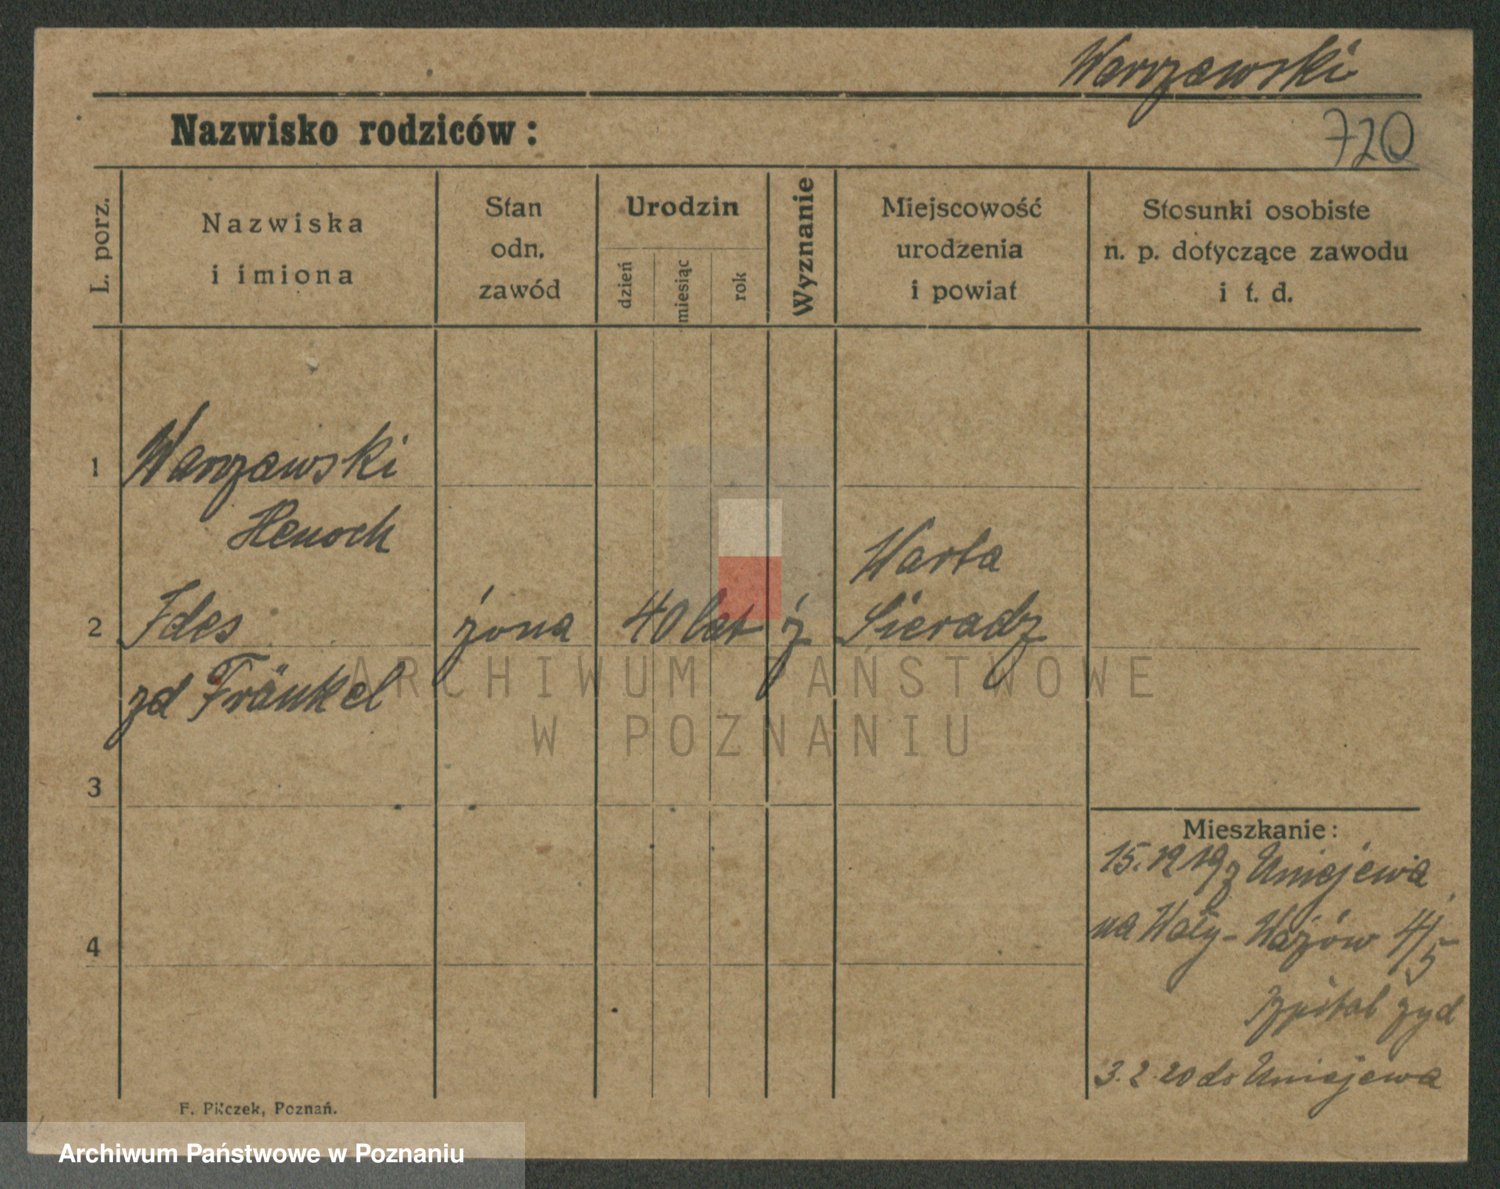 Warszawski
720
Nazwisko rodziców:
L. porz.
Nazwiska
i imiona
Stan
odn.
zawód
Urodzin
dzień
miesiąc
rok
Wyznanie
Miejscowość
urodzenia
i powiat
Stosunki osobiste
n. p. dotyczące zawodu
i t. d.
1 Warszawski
Henoch
Warta
2 Ides żona 40 lat ż Sieradz
zd Fränkel
ARCHIWUM PAŃSTWOWE
W POZNANIU
3
Mieszkanie:
15.12 19 z Uniejewa
na Wały-Wazów 4/5
4
szpital żyd
3.2.20 do Uniejewa
F. Pilczek, Poznań.
Archiwum Państwowe w Poznaniu